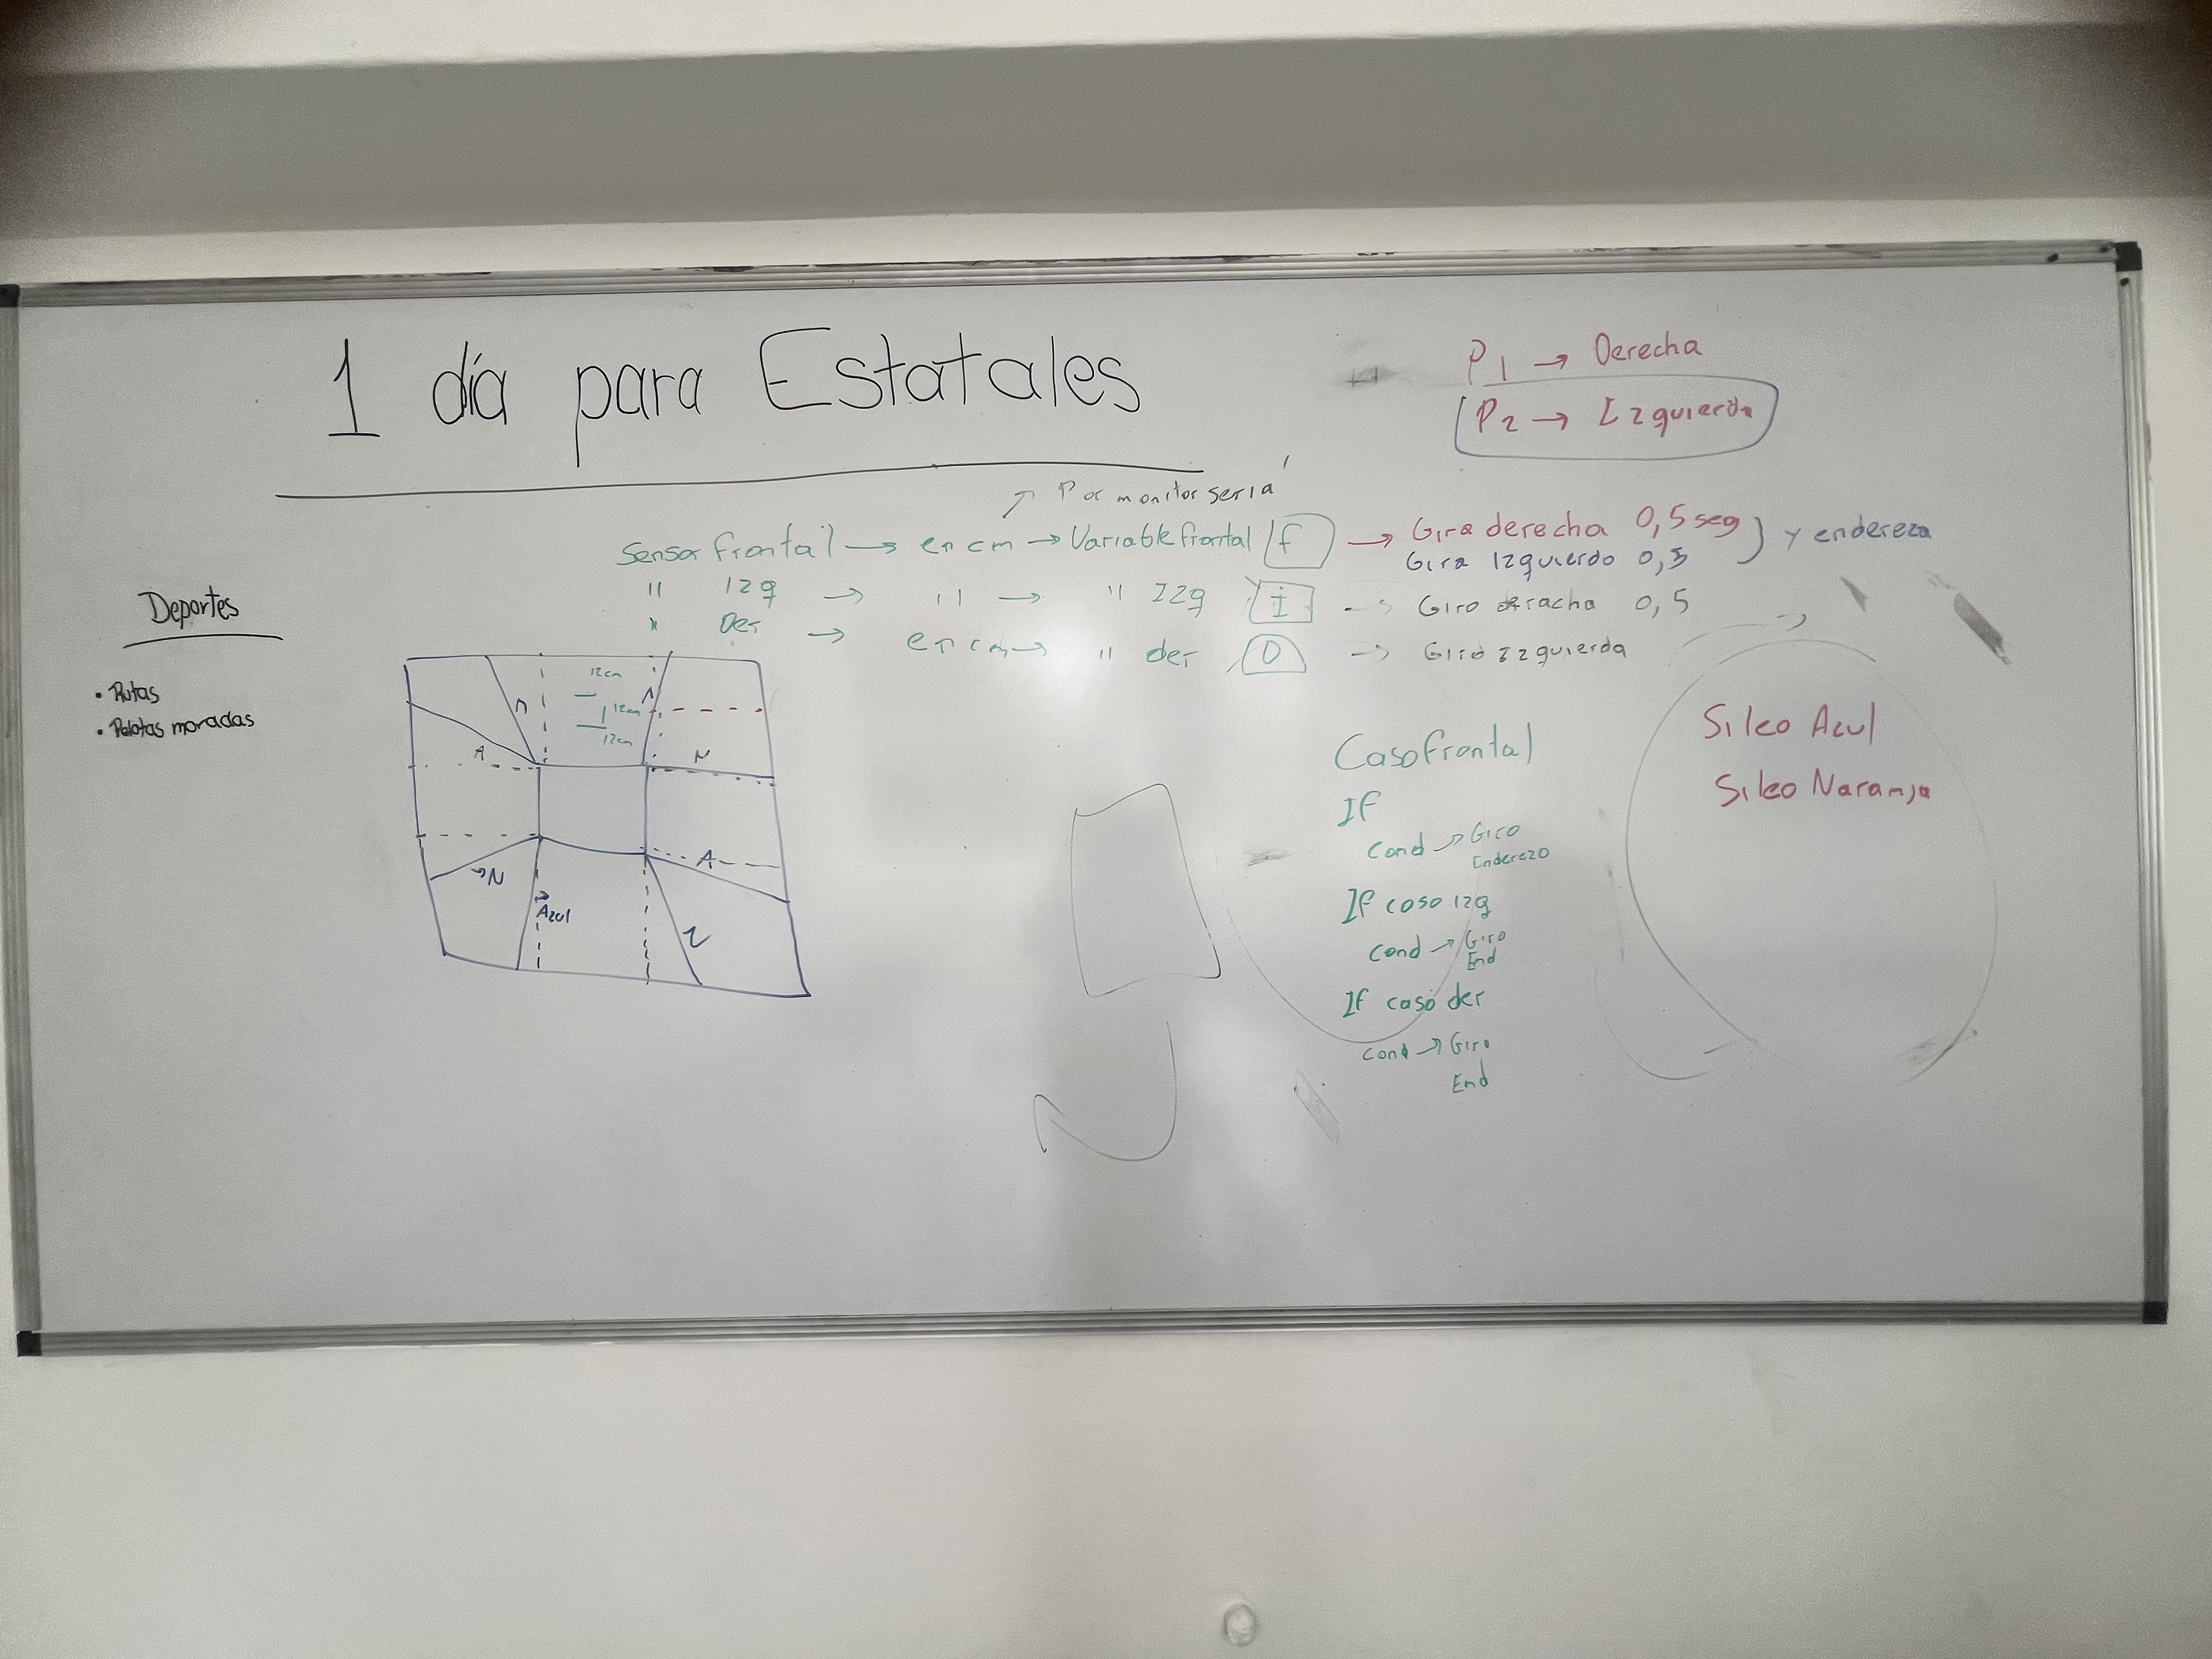 1 día para Estatales
P1 → Derecha
P2 → Izquierda
↗ Por monitor serial
Sensor frontal → en cm → Variable frontal f → Gira derecha 0,5 seg } y endereza
Gira Izquierdo 0,5
" Izq → " → " Izq I → Giro deracha 0,5
" Der → en cm → " der D → Giro Izquierda
Deportes
• Rutas
• Pelotas moradas
12cm
12cm
12cm
A
N
A
→N
Azul
Caso frontal
If
cond → Giro
Enderezo
If caso izq
cond → Giro
End
If caso der
cond → Giro
End
Si leo Azul
Si leo Naranja